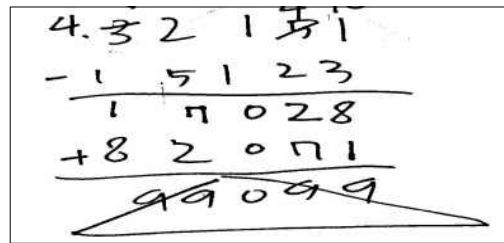 4. 3 2 1 5 1
- 1 5 1 2 3
1 7 0 2 8
+ 8 2 0 7 1
9 9 0 9 9